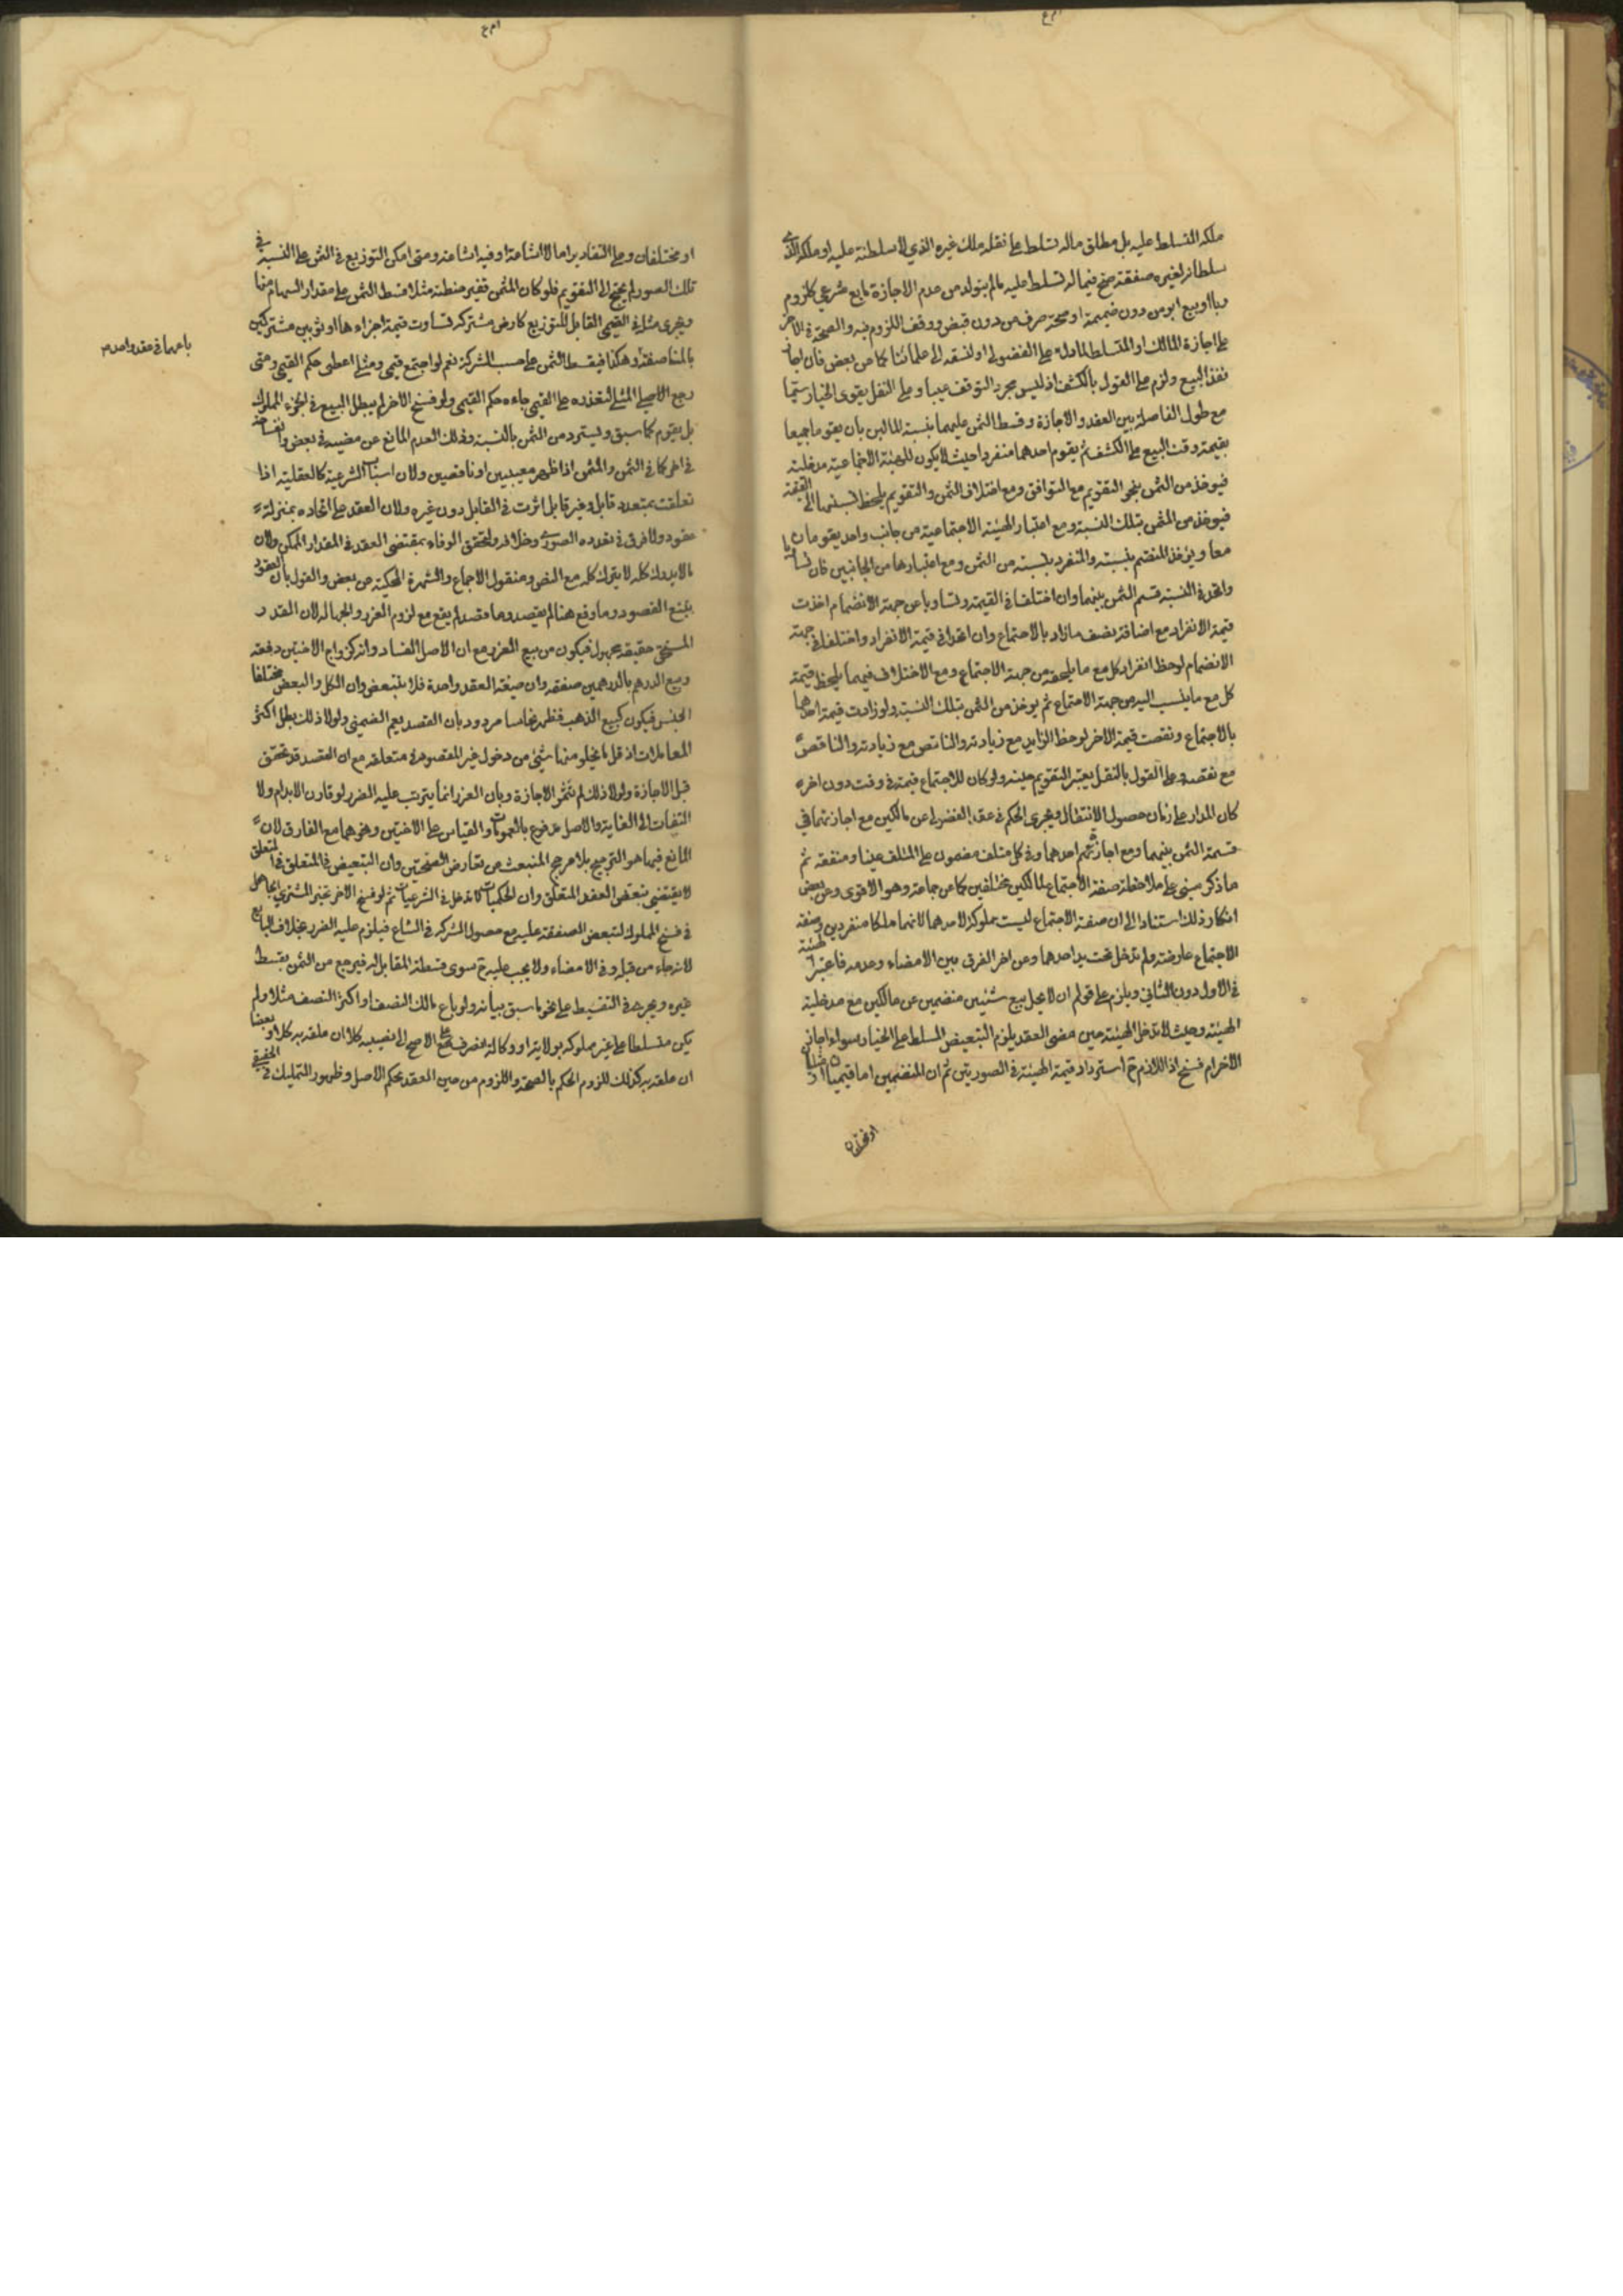 ملكه التسلط عليه بل مطلق ماله تسلط على نقله ملك غيره الذي لا سلطنة عليه او ملكه الذي
سلطانه لغيره صفقة صح فيما له تسلط عليه ما لم يتولد من عدم الاجازة مانع شرعي كلزوم
ربا او بيع ابق من دون ضميمة او صحة صرف من دون قبض ووقف اللزوم فيه والصحة في الاخر
على اجازة المالك او المتسلط المادل على الفضولي او لنسقه الى علمائنا كما عن بعض فان اجاز
نفذ البيع ولزم على القول بالكشف اذ ليس مجرد التوقف عيبا وعلى النقل يقوى الخيار سيما
مع طول الفاصلة بين العقد والاجازة وقسط الثمن عليهما بنسبة المالين بان يقوما جميعا
بقيمة وقت البيع على الكشف ثم يقوم احدهما منفردا حيث لا يكون للهيئة الاجتماعية مدخلية
فيؤخذ من الثمن بنحو التقويم مع التوافق ومع اختلاف الثمن والتقويم يلحظ نسبتها الى القيمة
فيؤخذ من الثمن بتلك النسبة ومع اعتبار الهيئة الاجتماعية من جانب واحد يقومان
معا ويؤخذ للمنضم بنسبته والمنفرد بنسبته من الثمن ومع اعتبارها من الجانبين فان تساويا
واتحد في النسبة قسم الثمن بينهما وان اختلفا في القيمة وتساويا من جهة الانضمام اخذت
قيمة الانفراد مع اضافة نصف ما زاد بالاجتماع وان اتحدا في قيمة الانفراد واختلفا في جهة
الانضمام لوحظ انفراد كل مع ما يلحقه من جهة الاجتماع ومع الاختلاف فيهما يلحظ قيمة
كل مع ما ينسب اليه من جهة الاجتماع ثم يؤخذ من الثمن بتلك النسبة ولو زادت قيمة احدهما
بالاجتماع ونقصت قيمة الاخر لوحظ الزايد مع زيادته والناقص
مع نقصه وعلى القول بالنقل يعتبر التقويم حينه ولو كان للاجتماع قيمة في وقت دون اخر
كان المدار على زمان حصول الانتقال ويجري الحكم في عقد الفضولي عن مالكين مع اجازتهما في
قسمة الثمن بينهما ومع اجازة احدهما وفي كل متلف مضمون على المتلف عينا او منفعة ثم
ما ذكر مبني على ملاحظة صفة الاجتماع لمالكين مختلفين كما عن جماعة وهو الاقوى وعن بعض
انكار ذلك استنادا الى ان صفة الاجتماع ليست مملوكة لاحدهما لانهما ملكا منفردين وصفة
الاجتماع عارضة ولم تدخل تحت يد احدهما وعن اخر الفرق بين الامضاء وعدمه فاعتبر الهيئة
في الاول دون الثاني ويلزم على قولهم ان لا يحل بيع شيئين منضمين عن مالكين مع مدخلية
الهيئة وحيث لا تدخل الهيئة حين مضى العقد يلزم التبعيض المسلط على الخيار سواء اجاز
الاخر ام فسخ اذ اللازم ح استرداد قيمة الهيئة في الصورتين ثم ان المنضمين اما قيميان او مثليان
او مختلفان
او مختلفان وعلى التقادير اما لا اشاعة او فيه اشاعة ومتى امكن التوزيع في الثمن على النسبة في
تلك الصور لم يحتج الى التقويم فلو كان المثمن قفيز حنطة مثلا قسط الثمن على مقدار السهام منها
ويجري مثله في القيمي القابل للتوزيع كارض مشتركة تساوت قيمة اجزاءها او ثوبين مشتركين
بالمناصفة وهكذا فيقسط الثمن على حسب الشركة نعم لو اجتمع قيمي ومثلي اعطى حكم القيمي ومتى
رجع الاصلي المثلي لتعذره على القيمي جاءه حكم القيمي ولو فسخ الاخر لم يبطل البيع في الجزء المملوك
بل يقوم كما سبق ويسترد من الثمن بالنسبة وذلك لعدم المانع عن مضيه في بعض وانفساخه
في اخر كما في الثمن والمثمن اذا ظهر معيبين او ناقصين ولان اسباب الشرعية كالعقلية اذا
تعلقت بمتعدد قابل وغير قابل اثرت في القابل دون غيره ولان العقد على اتحاده بمنزلة
عقود ولا فرق في تعدده الصوري وخلافه ولتحقق الوفاء بمقتضى العقد في المقدار الممكن ولان
ما لا يدرك كله لا يترك كله مع النص ومنقول الاجماع والشهرة المحكية عن بعض والقول بان العقود
يتبع القصود وما وقع هنا لم يقصد وما قصد لم يقع مع لزوم الغرر والجهالة لان القدر
المستحق حقيقة مجهول فيكون من بيع الغرر مع ان الاصل الفساد وانه كزواج الاختين دفعة
وبيع الدرهم بالدرهمين صفقة وان صيغة العقد واحدة فلا تتبعض وان الكل والبعض مختلفا
الجنس فيكون كبيع الذهب فظهر نحاسا مردود بان القصد يعم الضمني ولولا ذلك بطل اكثر
المعاملات اذ قل ما يخلو منها شيئ من دخول غير المقصود في متعلقه مع ان القصد قد تحقق
قبل الاجازة ولولا ذلك لم تثمر الاجازة وبان الغرر انما يترتب عليه الضرر لو قارن الابرام ولا
التفات الى الغاية والاصل مدفوع بالعمومات والقياس على الاختين ونحوهما مع الفارق لان
المانع فيهما هو الترجيح بلا مرجح المنبعث من تعارض الصحتين وان التبعيض في المتعلق
لا يقتضي تبعض العقد المتعلق وان الحكميات لا تدخل في الشرعيات ثم لو فسخ الاخر تخير المشتري الجاهل
في فسخ المملوك لتبعض الصفقة عليه مع حصول الشركة في المشاع فيلزم عليه الضرر بخلاف البائع
لانه جاء من قبله وفي الامضاء ولا يجب عليه ح سوى قسطه المقابل له فيرجع من الثمن بقسط
غيره ويجري في التقسيط على نحو ما سبق بيانه ولو باع مالك النصف او اكثر النصف مثلا ولم
يكن متسلطا على غير مملوكه بولاية او وكالة انصرف على الاصح الى نصيبه كلا ان علقه به كلا او بعضا
ان علقه به كذلك للزوم الحكم بالصحة واللزوم من حين العقد بحكم الاصل وظهور التمليك في الحقيقي